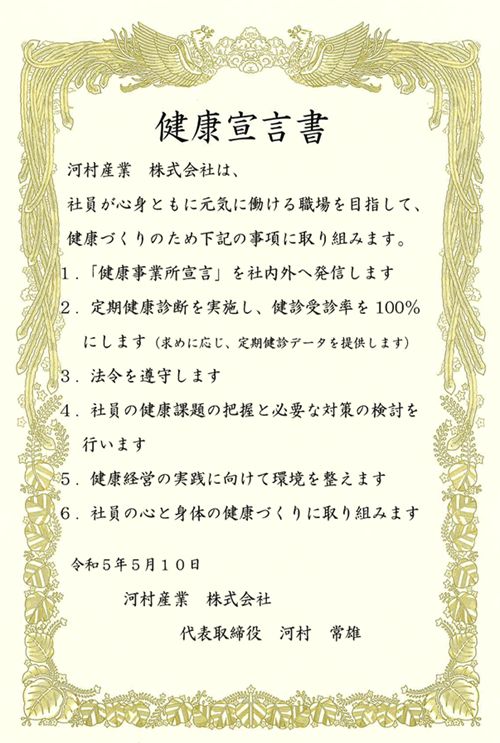 健康宣言書
河村産業　株式会社は、
社員が心身ともに元気に働ける職場を目指して、
健康づくりのため下記の事項に取り組みます。
１．「健康事業所宣言」を社内外へ発信します
２．定期健康診断を実施し、健診受診率を100％
にします（求めに応じ、定期健診データを提供します）
３．法令を遵守します
４．社員の健康課題の把握と必要な対策の検討を
行います
５．健康経営の実践に向けて環境を整えます
６．社員の心と身体の健康づくりに取り組みます
令和５年５月１０日
河村産業　株式会社
代表取締役　河村　常雄